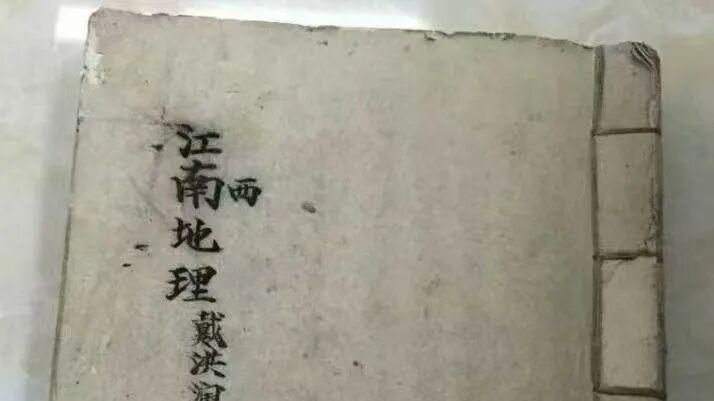 江南地理
西
戴洪润